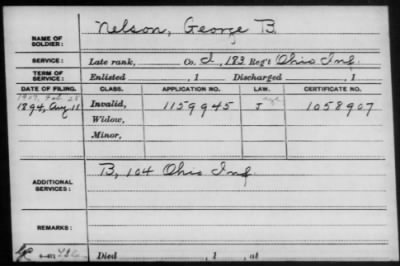 NAME OF SOLDIER: Nelson, George B.
SERVICE: Late rank, Co. I, 183 Reg't Ohio Inf.
TERM OF SERVICE: Enlisted , 1 Discharged , 1
DATE OF FILING. CLASS. APPLICATION NO. LAW. CERTIFICATE NO.
1907, Feb 28
1894, Aug 11 Invalid, 1159945 J 1058907
Widow,
Minor,
ADDITIONAL SERVICES: B, 104 Ohio Inf.
REMARKS:
Died , 1 , at